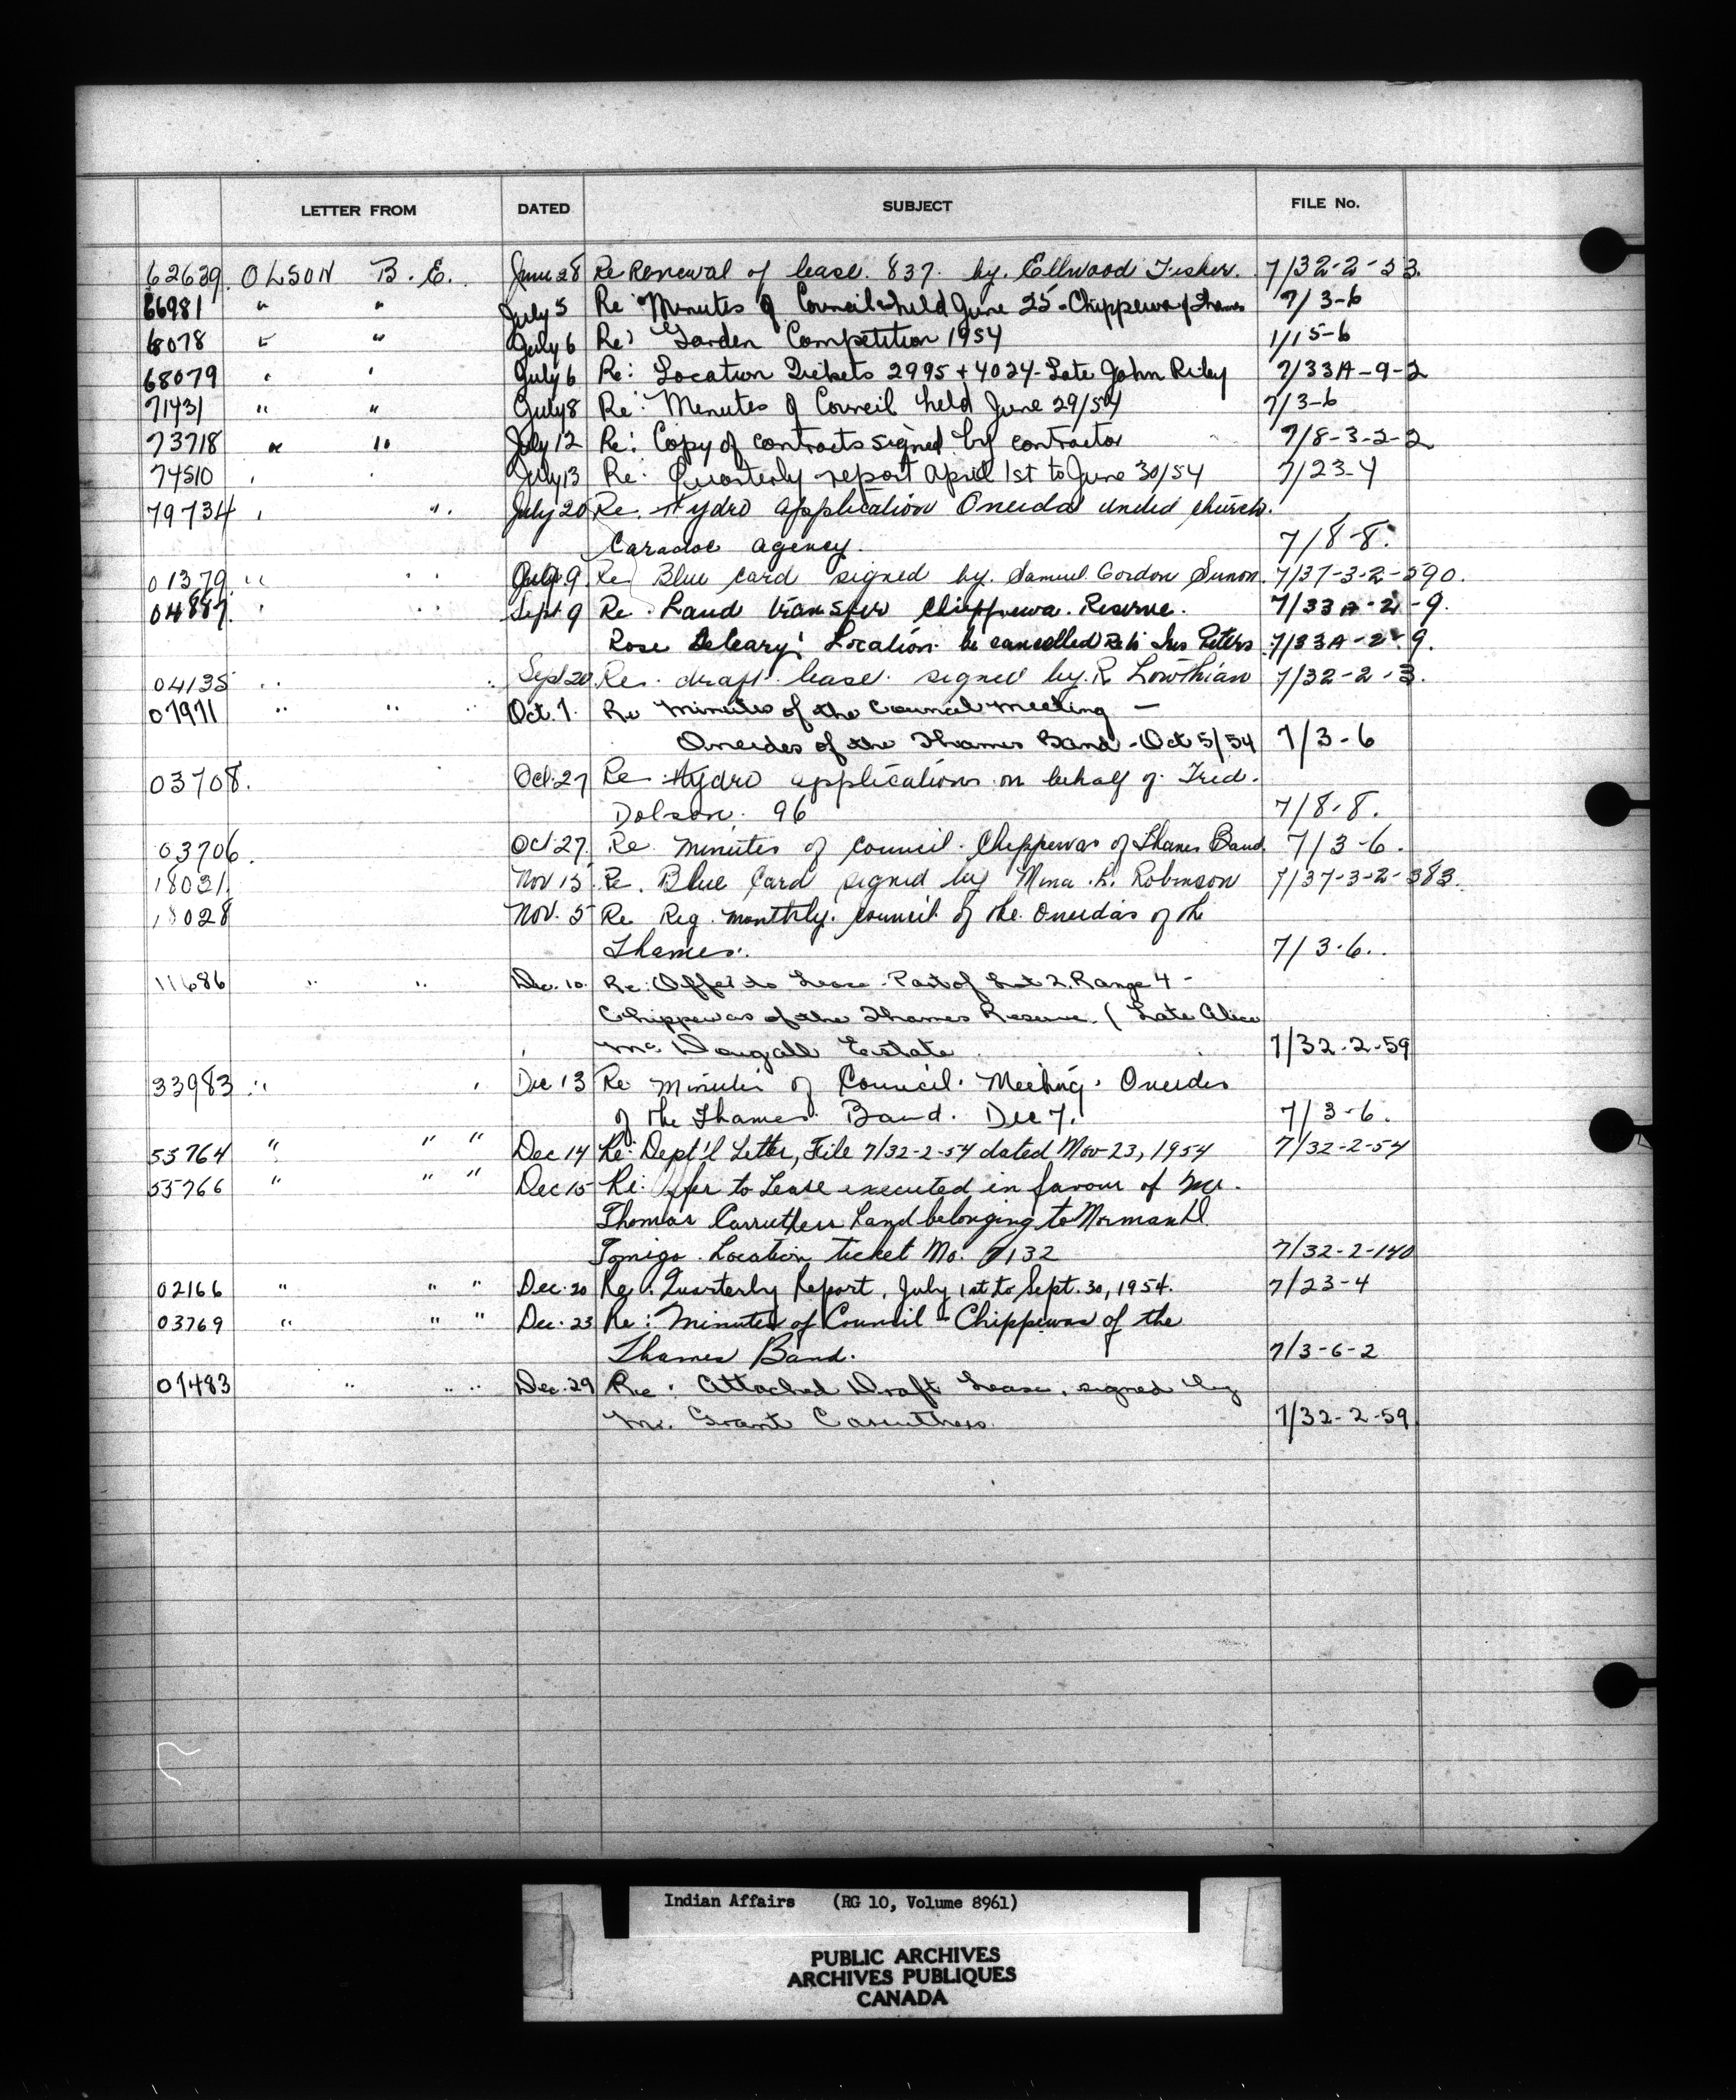 LETTER FROM DATED SUBJECT FILE No.
62639 OLSON B. E. June 28 Re Renewal of lease 837 by Ellwood Fisher. 7/32-2-33
66981 " " July 5 Re Minutes of Council held June 25 - Chippewa of Thames 7/3-6
6078 " " July 6 Re: Garden Competition 1954 1/15-6
68079 " " July 6 Re: Location Tickets 2995 + 4024 - Late John Riley 7/33A-9-2
71431 " " July 8 Re: Minutes of Council held June 29/54 7/3-6
73718 " " July 12 Re: Copy of contracts signed by contractor 7/8-3-2-2
74510 " July 13 Re: Quarterly report April 1st to June 30/54 7/23-4
79734 " " July 20 Re. Hydro application Oneida United church.
Caradoc agency. 7/8-8.
01379 " " 9 Re Blue card signed by Samuel Gordon 7/37-3-2-590.
04887 " " Sept. 9 Re. Land transfer Chippewa Reserve. 7/33A-2-9.
Rose Deleary: Location be cancelled Peters 7/33A-2-9.
04135 " " Sept 20 Re. draft lease signed by R Lowthian 7/32-2-3.
07971 " " Oct. 7. Re Minutes of the Council Meeting -
Oneidas of the Thames Band - Oct 5/54 7/3-6
03708. Oct. 27 Re. Hydro applications on behalf of Fred.
Dolson. 96 7/8-8.
03706. Oct 27. Re. minutes of council. Chippewas of Thames Band 7/3-6.
18031. Nov 15 Re. Blue Card signed by Mina R. Robinson 7/37-3-2-383.
18028 Nov. 5 Re Reg. monthly council of the Oneidas of the
Thames. 7/3-6.
11686 " " Dec. 10. Re: Offer to Lease - Part of Lot 2, Range 4 -
Chippewas of the Thames Reserve. ( Late Alice
Mc Dougall Estate 7/32-2-59
33983 " " Dec 13 Re Minutes of Council. Meeting. Oneidas
of the Thames Band. Dec 7. 7/3-6.
55764 " " " Dec 14 Re: Dept'l Letter, File 7/32-2-54 dated Nov-23, 1954 7/32-2-54
55766 " " " Dec 15 Re: Offer to Lease executed in favour of Mr.
Thomas Carruthers Land belonging to Norman D.
Tomigo. Location ticket No. 7132 7/32-2-140
02166 " " " Dec. 20 Re: Quarterly Report, July 1st to Sept. 30, 1954. 7/23-4
03769 " " " Dec. 23 Re: Minutes of Council - Chippewas of the
Thames Band. 7/3-6-2
07483 " " " Dec. 29 Re: Attached Draft Lease, signed by
Mr. Grant Carruthers. 7/32-2-59
Indian Affairs (RG 10, Volume 8961)
PUBLIC ARCHIVES
ARCHIVES PUBLIQUES
CANADA